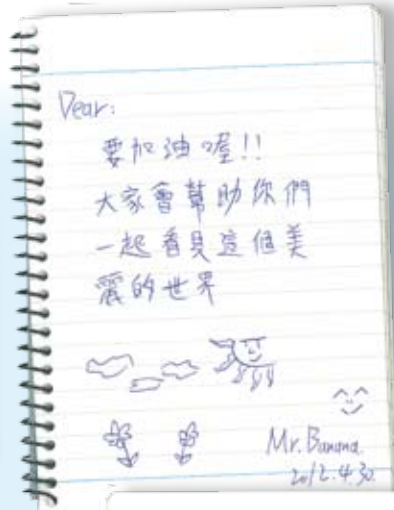 Dear:
要加油喔!!
大家會幫助你們
一起看見這個美
麗的世界
Mr. Banana.
2012.4.30.